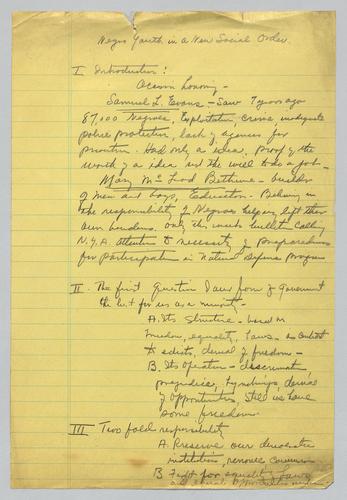 Negro Youth in a New Social Order.
I Introduction:
Samuel L. Evans - Saw 7 years ago
87,000 Negroes, Exploitation, Crime, inadequate
police protection, lack of agencies for
Had only a idea, proof of the
worth of a idea and the will to do a job -
Mary McLeod Bethune - builder
of men and boys, Education - Believing in
the responsibility of Negroes helping lift their
own burdens, only this week bulletin calling
N.Y.A. attention to necessity of preparedness
for participation in National Defense program
II. The first question Is our form of Government
the best for us as a minority -
A. Its Structure - based on
freedom, equality, laws - as
to edicts, denial of freedom -
B. Its Operation - discrimination,
prejudice, lynchings, denial
of opportunities, still we have
some freedom
III Two fold responsibility
A. Preserve our democratic
institutions,
B Fight for equality of laws
and equal opportunities